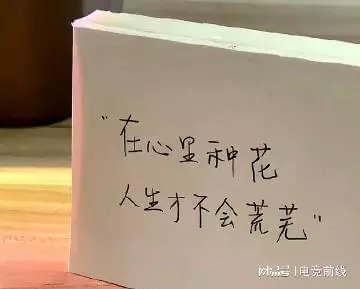 "在心里种花
人生才不会荒芜"
搜狐号|电竞前线